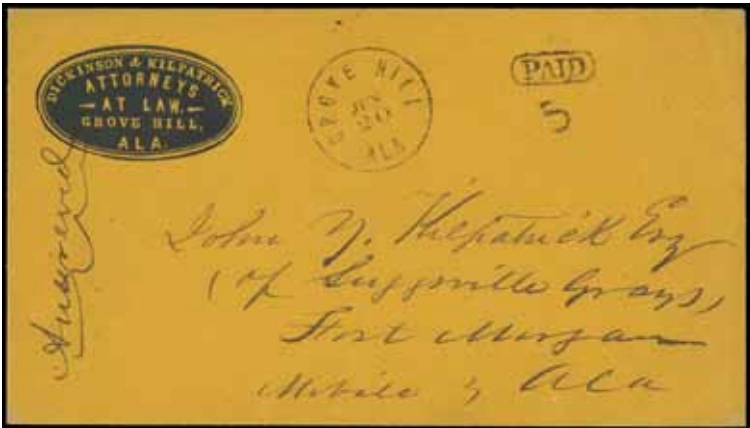 DICKINSON & KILPATRICK
ATTORNEYS
AT LAW,
GROVE HILL,
ALA.
GROVE HILL
JUN
20
ALA
PAID
5
Answered
John Y. Kilpatrick Esq
(of Suggsville Grays)
Fort Morgan
Mobile, Ala